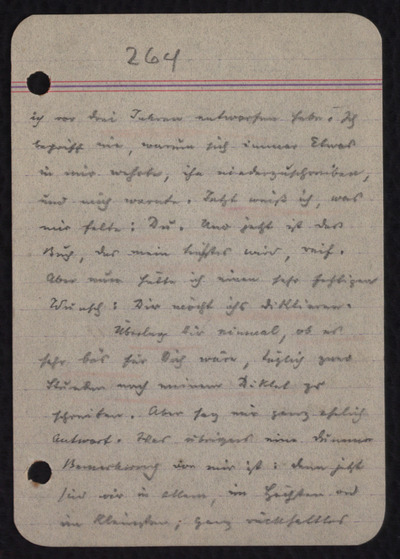 264
ich vor drei Jahren entworfen habe. Ich
begriff nie, warum sich immer Etwas
in mir wehrte, ihn niederzuschreiben,
und mich warnte. Jetzt weiß ich, was
mir fehlte: Du. Und jetzt ist das
Buch, das mein tiefstes wird, reif.
Aber nun hätte ich einen sehr heftigen
Wunsch: Dir möcht ichs diktieren.
Überleg Dir einmal, ob es
sehr bös für Dich wäre, täglich zwei
Stunden nach meinem Diktat zu
schreiben. Aber sag mir ganz ehrlich
Antwort. Was übrigens eine dumme
Bemerkung von mir ist: denn jetzt
sind wir in allem, im Höchsten und
im Kleinsten, ganz rückhaltlos